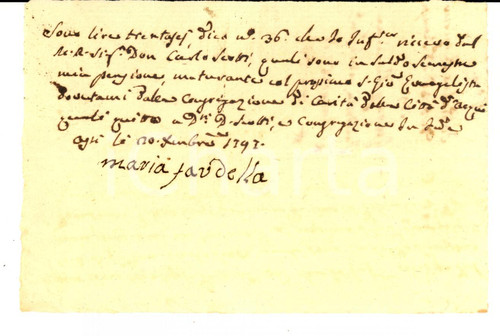 Sono lire trentasei dico n.° 36. che Io Inf.to ricevo dal
M. R. Sig.r Don Carlo Scotti, quali sono in saldo Semestre
mia pensione, maturante col prossimo S. Gio. Evangelista
dovutami dalla Congregazione di Carità della Città d'
quale quitto D. Scotti, e Congregazione In fede
li 20. Xmbre 1797.
Maria Favdella